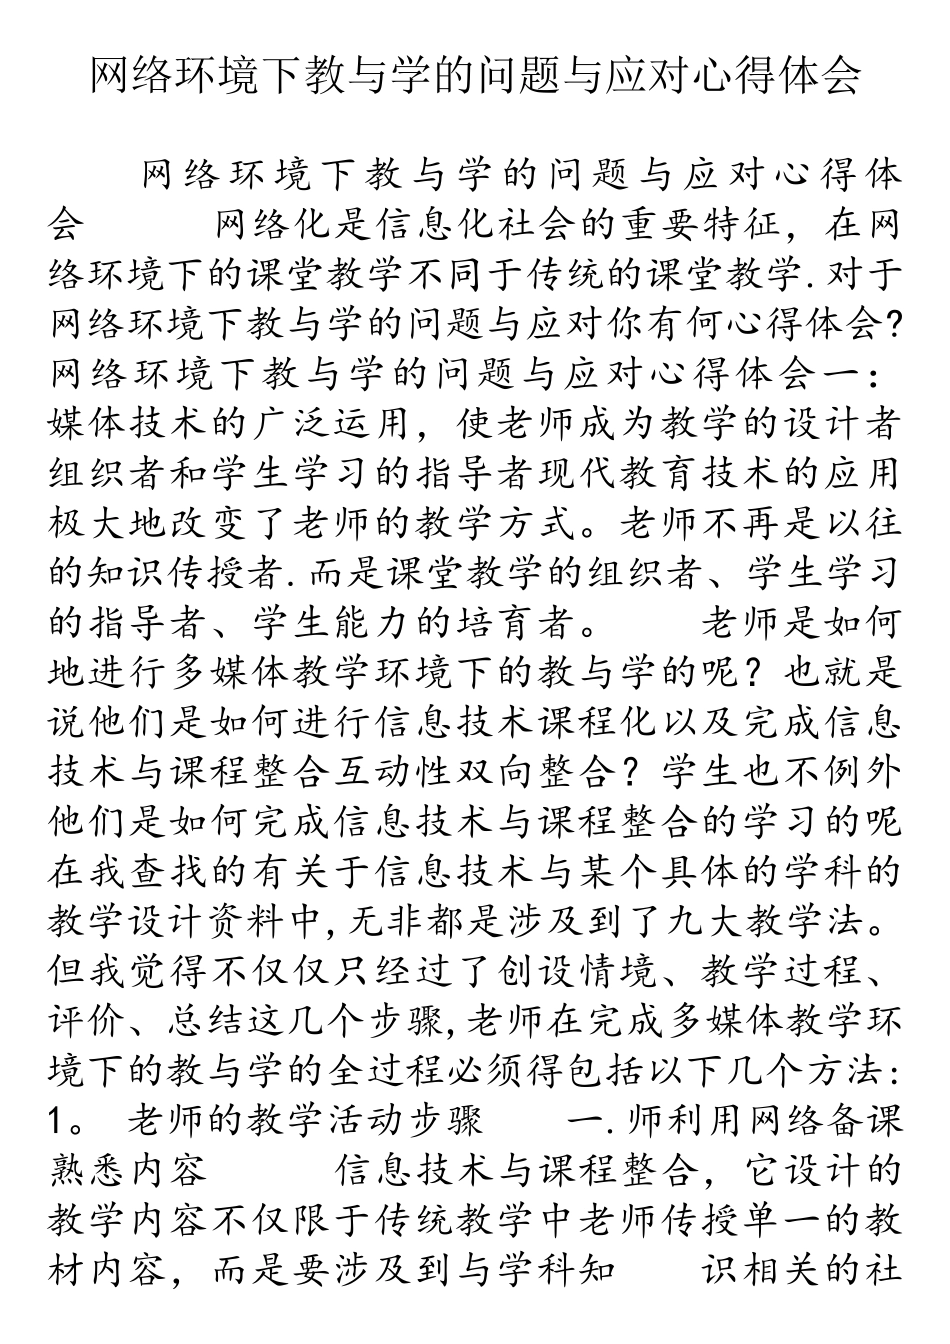 网络环境下教与学的问题与应对心得体会
网络环境下教与学的问题与应对心得体
会 网络化是信息化社会的重要特征，在网
络环境下的课堂教学不同于传统的课堂教学.对于
网络环境下教与学的问题与应对你有何心得体会?
网络环境下教与学的问题与应对心得体会一：
媒体技术的广泛运用，使老师成为教学的设计者
组织者和学生学习的指导者现代教育技术的应用
极大地改变了老师的教学方式。老师不再是以往
的知识传授者.而是课堂教学的组织者、学生学习
的指导者、学生能力的培育者。 老师是如何
地进行多媒体教学环境下的教与学的呢？也就是
说他们是如何进行信息技术课程化以及完成信息
技术与课程整合互动性双向整合？学生也不例外
他们是如何完成信息技术与课程整合的学习的呢
在我查找的有关于信息技术与某个具体的学科的
教学设计资料中,无非都是涉及到了九大教学法。
但我觉得不仅仅只经过了创设情境、教学过程、
评价、总结这几个步骤,老师在完成多媒体教学环
境下的教与学的全过程必须得包括以下几个方法:
1。 老师的教学活动步骤 一.师利用网络备课
熟悉内容 信息技术与课程整合，它设计的
教学内容不仅限于传统教学中老师传授单一的教
材内容，而是要涉及到与学科知 识相关的社